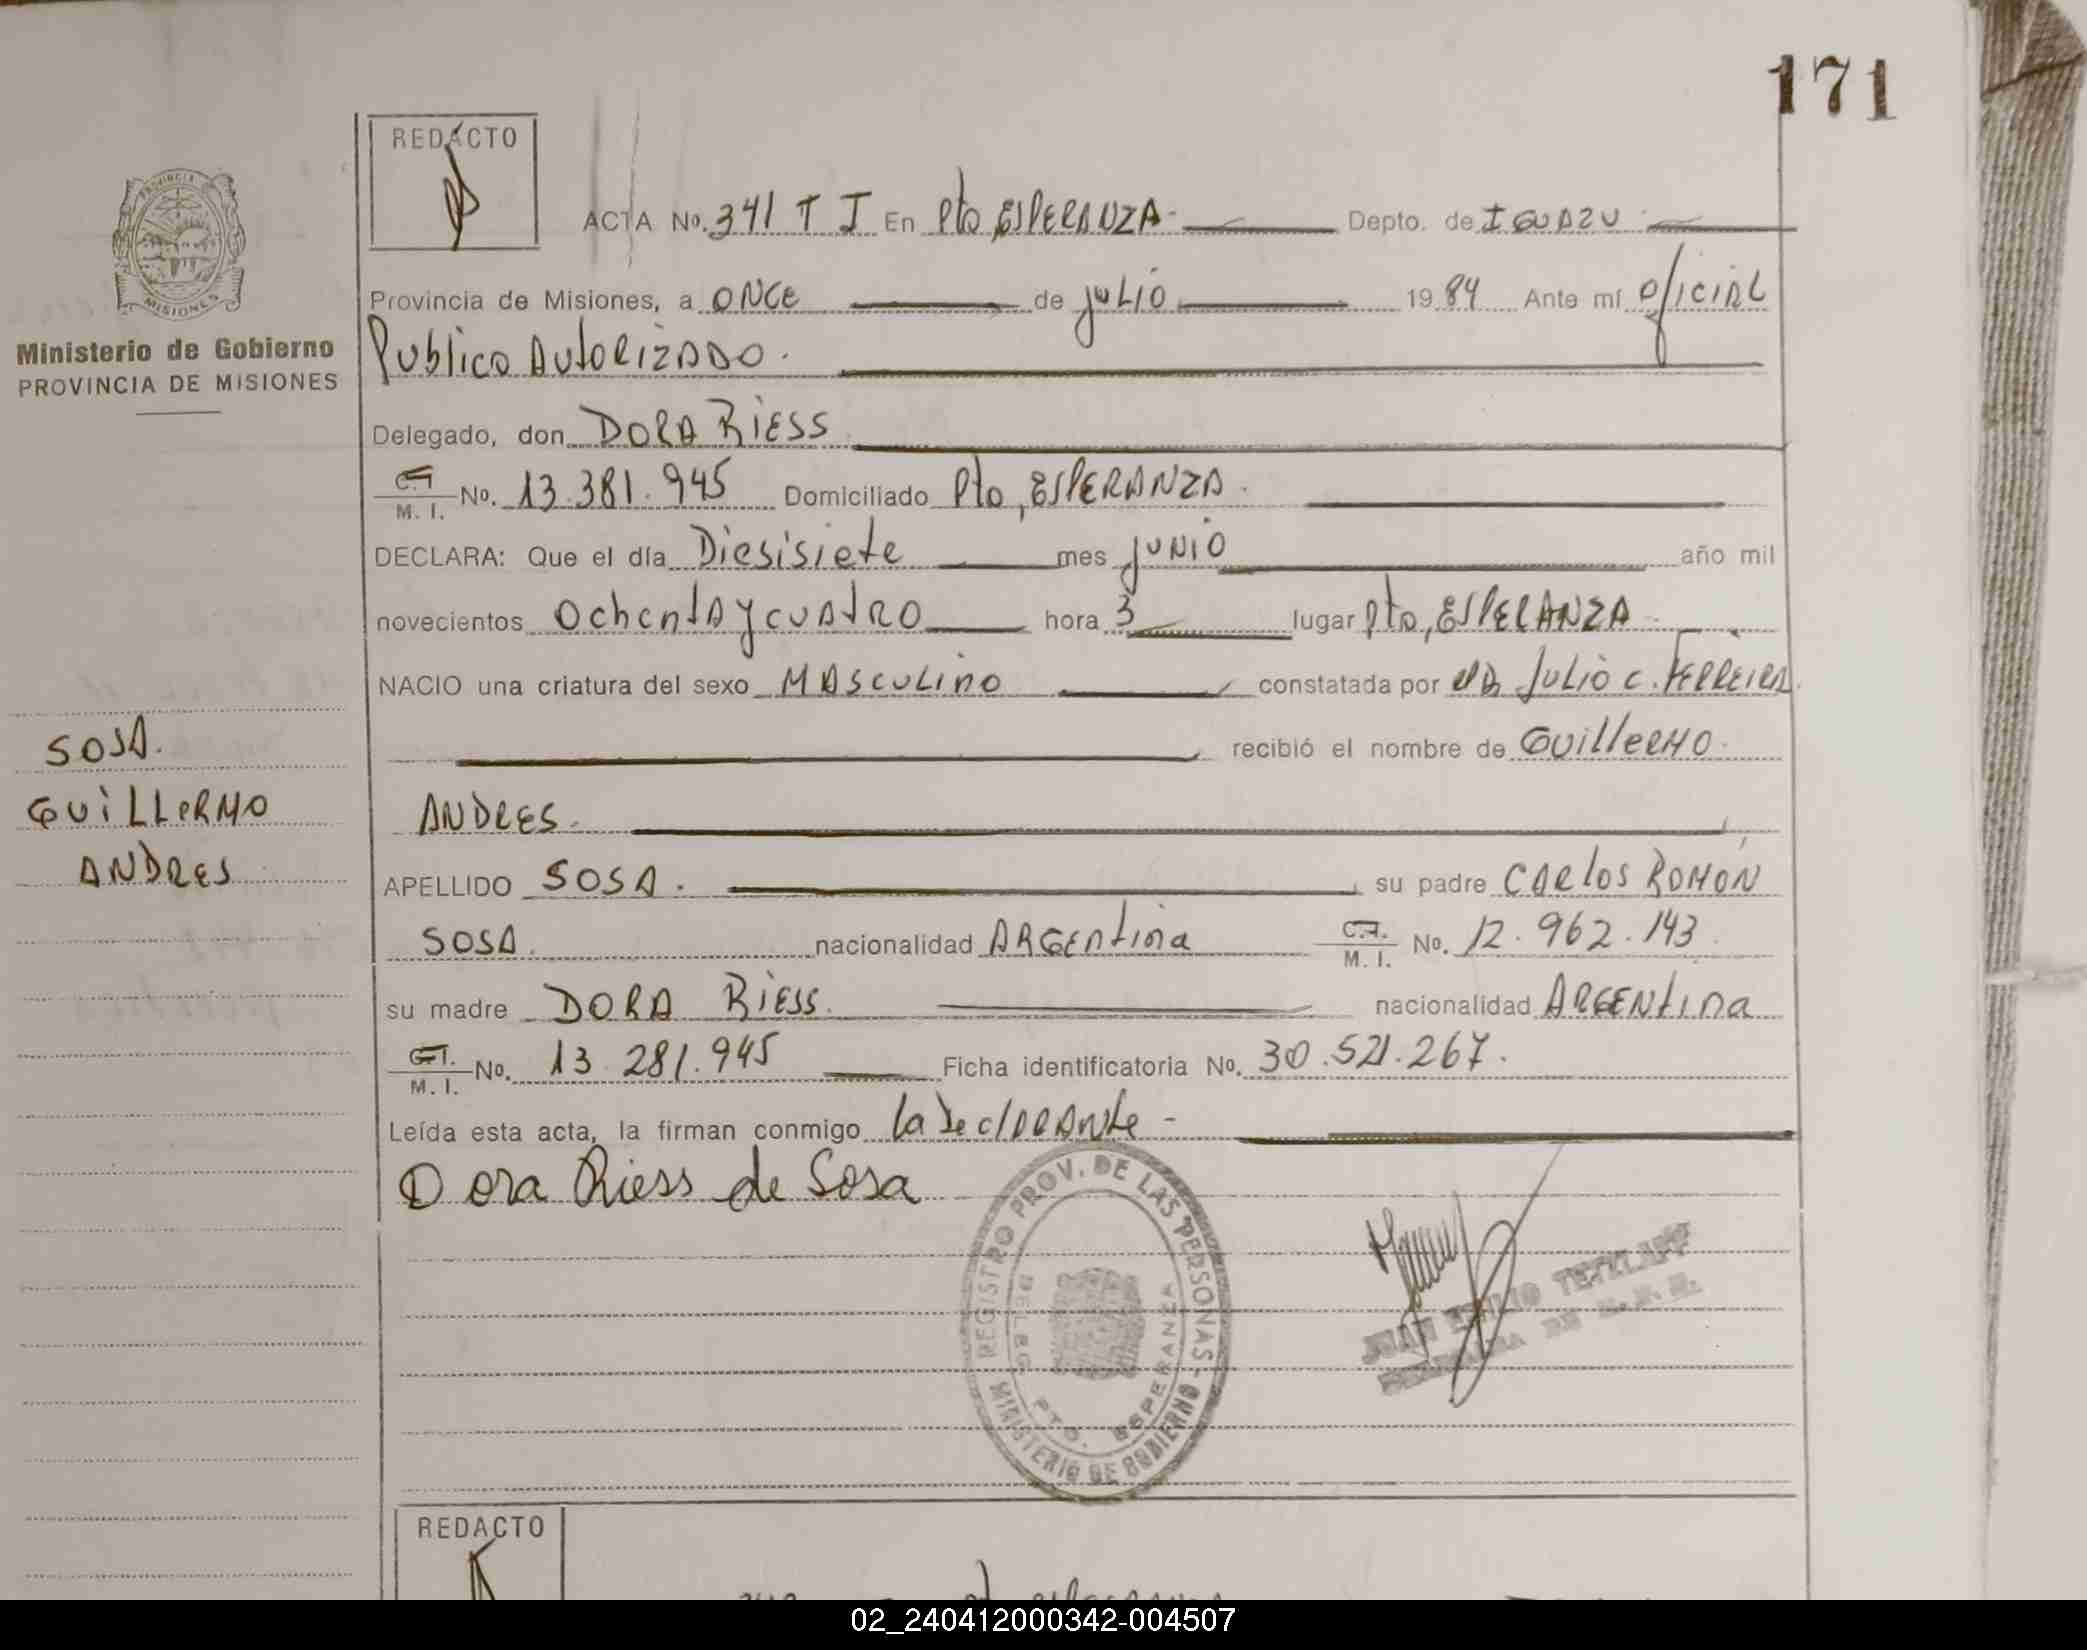 171
REDACTO
PROVINCIA
MISIONES
Ministerio de Gobierno
PROVINCIA DE MISIONES
ACTA No. 341 T I En Pto, ESPERANZA- Depto. de IGUAZU
Provincia de Misiones, a ONCE de julio 1984 Ante mí oficial
Publico Autorizado.
Delegado, don DORA RIESS
C.I. M. I. No. 13.381.945 Domiciliado Pto, ESPERANZA.
DECLARA: Que el día Diesisiete mes junio año mil
novecientos ochenta y cuatro hora 3 lugar Pto, ESPERANZA
NACIO una criatura del sexo MASCULINO constatada por Julio C. FERREIRA.
recibió el nombre de Guillermo
ANDRES.
SOSA.
GUILLERMO
ANDRES
APELLIDO SOSA. su padre CARLOS ROMÓN
SOSA. nacionalidad ARGENtina C.I. M. I. No. 12.962.143
su madre DORA RIESS. nacionalidad ARGENtina
C.I. M. I. No. 13.281.945 Ficha identificatoria No. 30.521.267.
Leída esta acta, la firman conmigo la declarante -
Dora Riess de Sosa
REGISTRO PROV. DE LAS PERSONAS - MINISTERIO DE GOBIERNO
PTO. ESPERANZA
JUAN
REDACTO
02_240412000342-004507